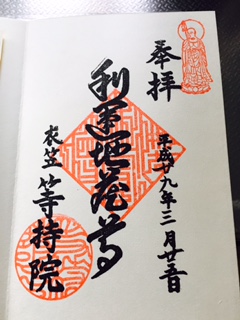 奉拝
平成廿九年三月廿五日
利運地蔵尊
衣笠 等持院